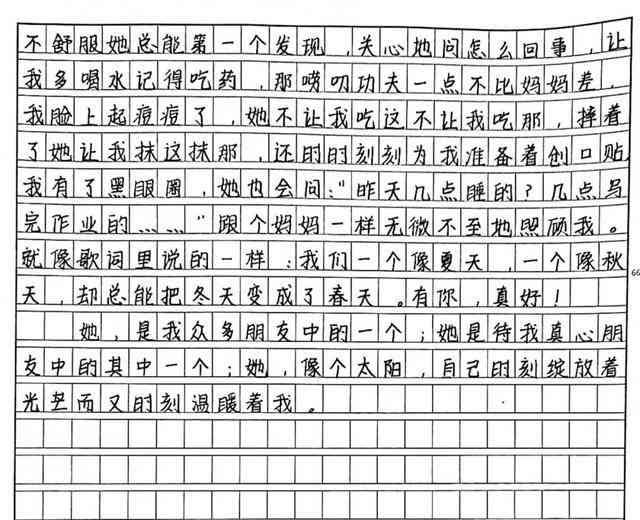 不舒服她总能第一个发现，关心地问怎么回事，让
我多喝水记得吃药，那唠叨功夫一点不比妈妈差，
我脸上起痘痘了，她不让我吃这不让我吃那，摔着
了她让我抹这抹那，还时时刻刻为我准备着创口贴
我有了黑眼圈，她也会问："昨天几点睡的？几点写
完作业的……"跟个妈妈一样无微不至地照顾我。
就像歌词里说的一样：我们一个像夏天，一个像秋
天，却总能把冬天变成了春天。有你，真好！
她，是我众多朋友中的一个；她是待我真心朋
友中的其中一个；她，像个太阳，自己时刻绽放着
光芒而又时刻温暖着我。
66